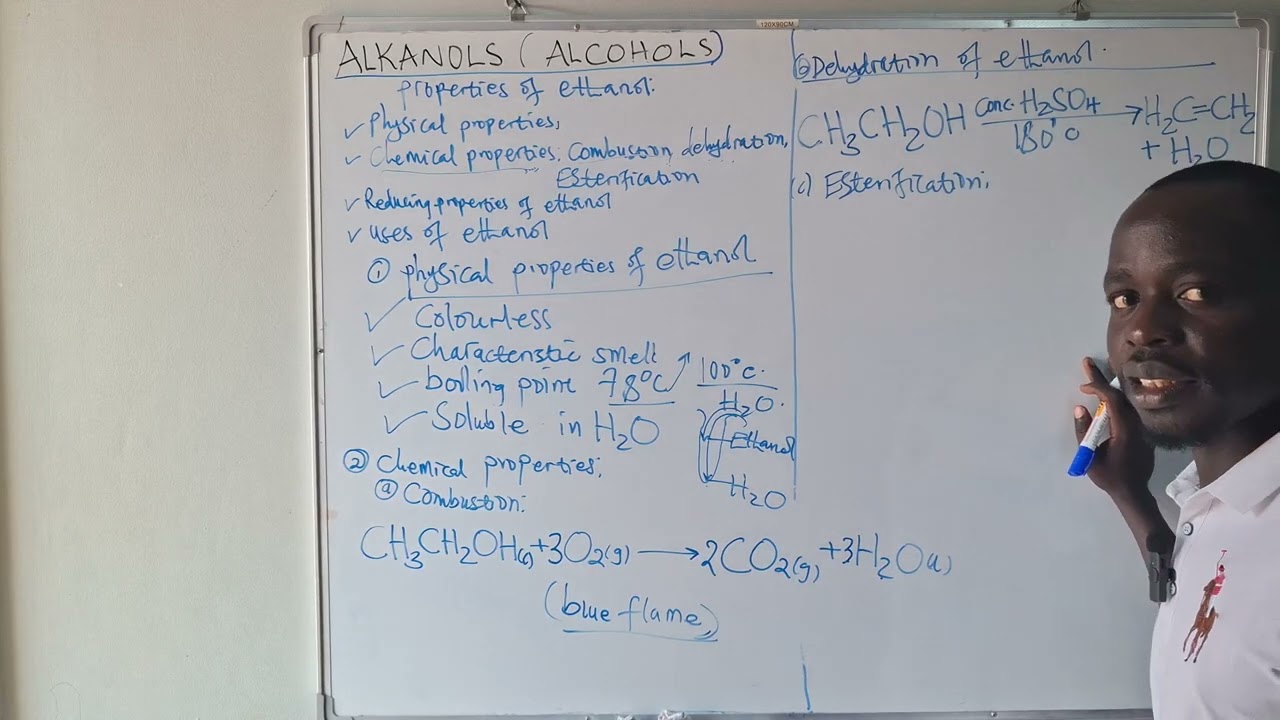 120X90CM
ALKANOLS (ALCOHOLS)
properties of ethanol.
✓ Physical properties,
✓ Chemical properties: Combustion, dehydration,
Esterification
✓ Reducing properties of ethanol
✓ uses of ethanol
① physical properties of ethanol
✓ Colourless
✓ Characteristic smell
✓ boiling point 78°C 100°C.
✓ Soluble in H₂O
H₂O.
Ethanol
H₂O
② Chemical properties;
ⓐ Combustion:
CH₃CH₂OH(l) + 3O₂(g) → 2CO₂(g) + 3H₂O(l)
(blue flame)
ⓑ Dehydration of ethanol.
CH₃CH₂OH conc. H₂SO₄ → H₂C=CH₂
180°C + H₂O
(c) Esterification;